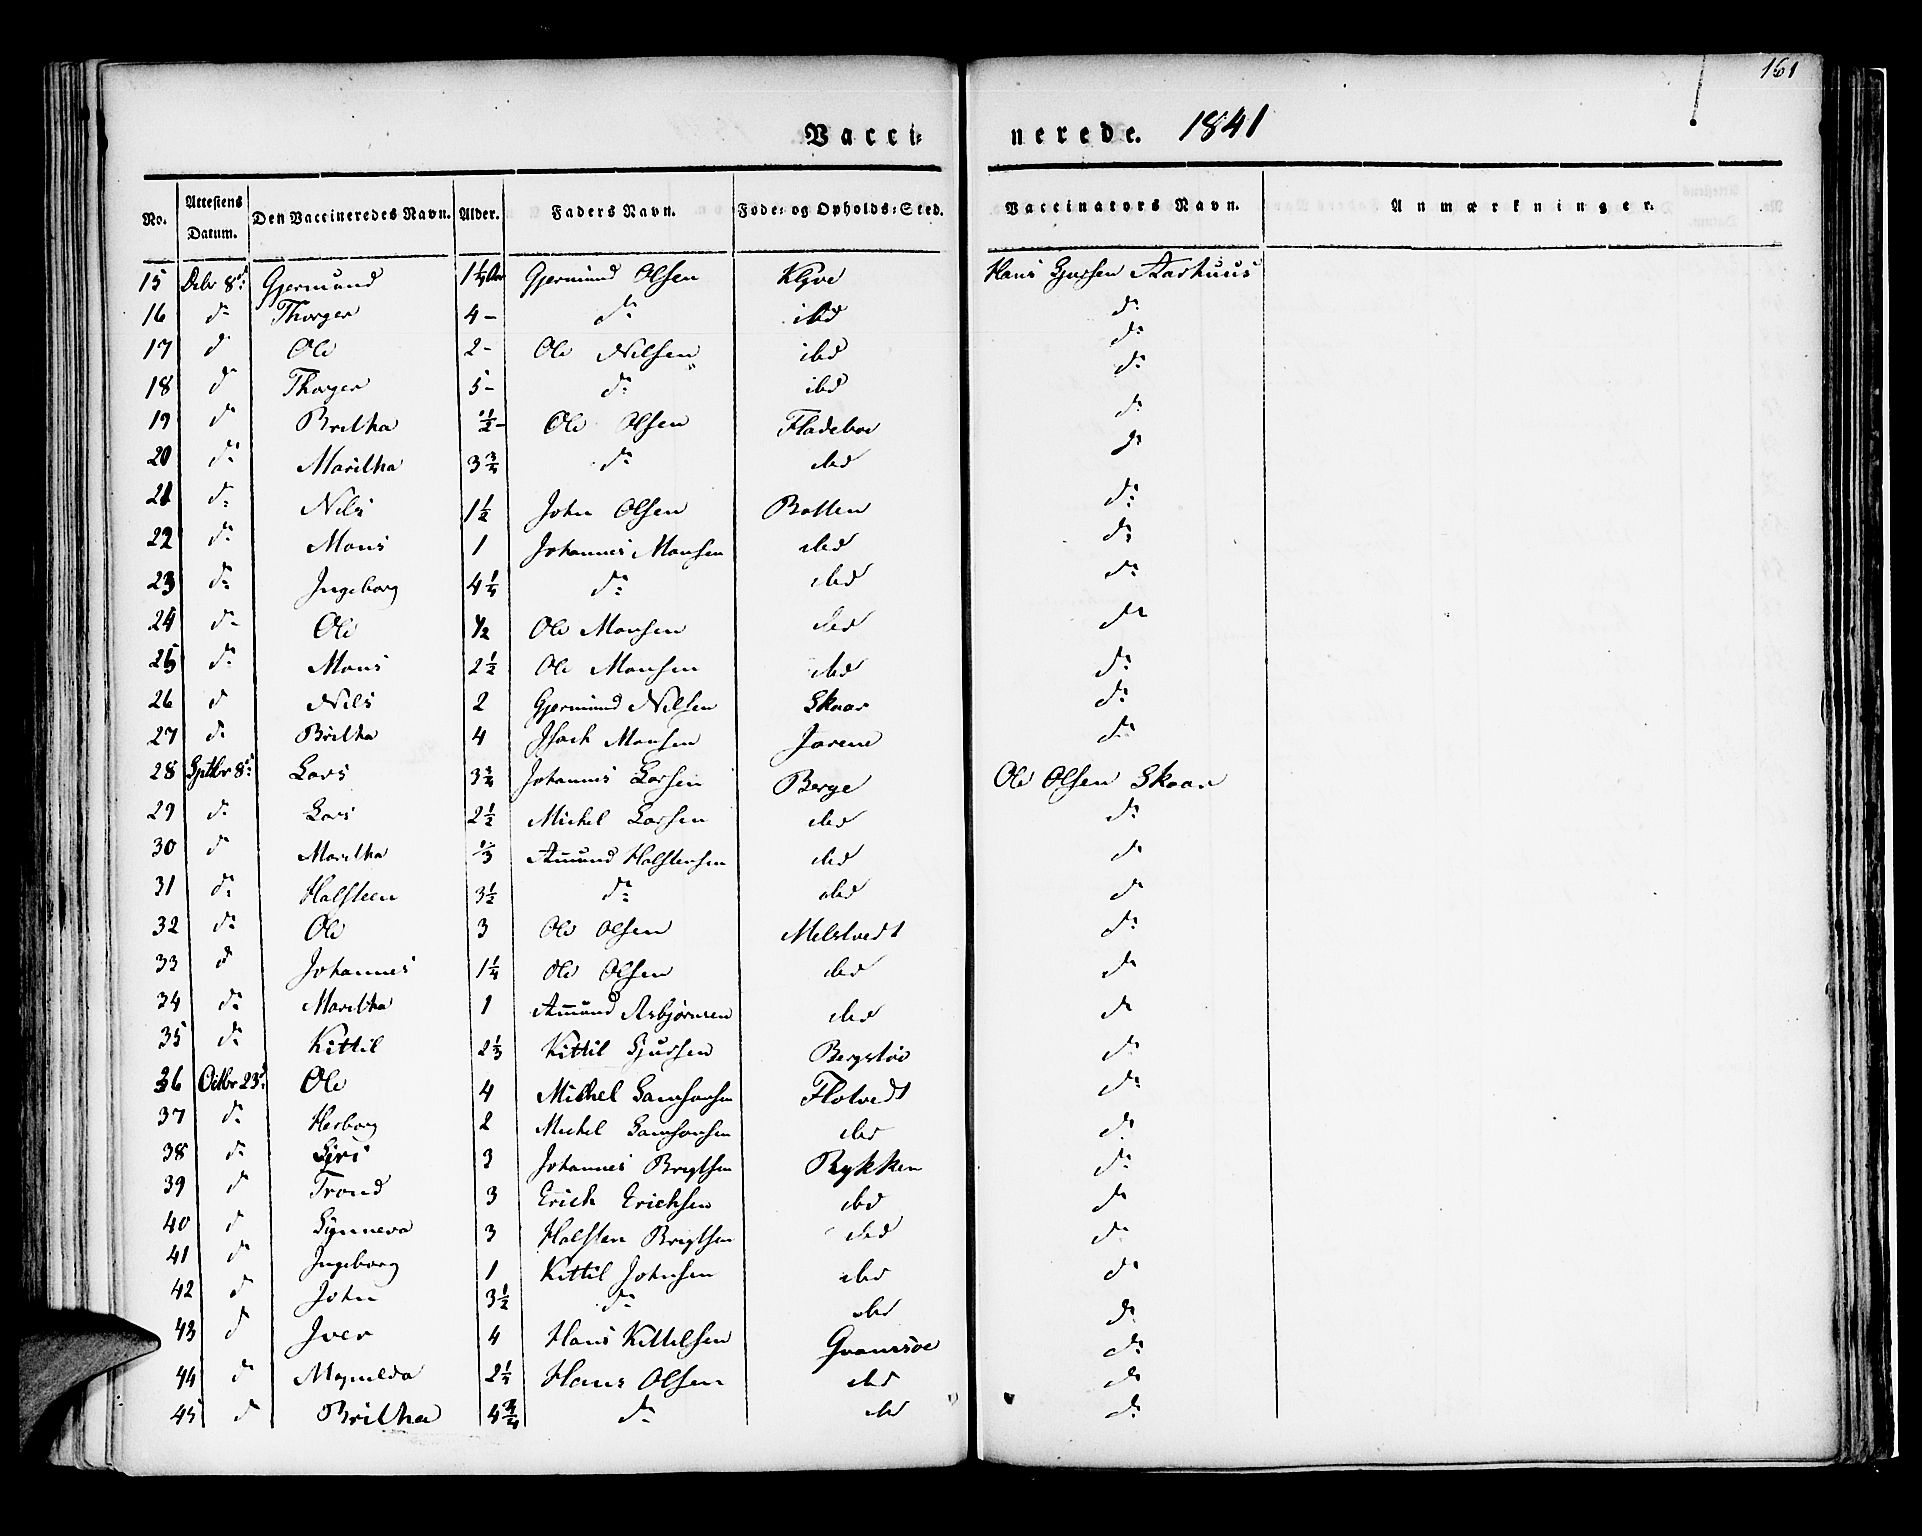 161
Vacci: nerede. 1841
No. Attestens Datum. Den Vaccineredes Navn. Alder. Faders Navn. Føde- og Opholds-Sted. Vaccinators Navn. Anmærkninger.
15 Debr 8d: Gjermund 1¼ Aar Gjermund Olsen Klyve Hans Sjursen Aarhuus
16 do Thorger 4 – do ibd do
17 d Ole 2 – Ole Nilsen ibd do
18 do Thorger 5 – do ibd do
19 do Britha ½ – Ole Olsen Fladeboe do
20 do Maritha 3¾ do ibd do
21 do Nils 1½ John Olsen Botten do
22 do Mons 1 Johannes Monsen ibd do
23 do Ingeborg 4¼ do ibd do
24 do Ole ½ Ole Monsen ibd do
25 do Mons 2½ Ole Monsen ibd do
26 d Nils 2 Gjermund Nilsen Skaar do
27 do Britha 4 Isach Monsen Jarene do
28 Sptbr 8d: Lars 3¾ Johannes Larsen Berge Ole Olsen Skaar
29 do Lars 2½ Michel Larsen ibd do
30 do Maritha ⅓ Amund Halstensen ibd do
31 do Halsteen 3½ do ibd do
32 do Ole 3 Ole Olsen Melstvedt do
33 d Johannes 1¼ Ole Olsen ibd do
34 do Maritha 1 Amund Asbjørnsen ibd do
35 do Kittil 2⅓ Kittil Sjursen Bergstøe do
36 Octbr 23d: Ole 4 Michel Samsonsen Flotvedt do
37 do Herborg 2 Michel Samsonsen ibd do
38 do Siri 3 Johannes Brytsen Rykken do
39 do Trond 3 Erich Erichsen ibd do
40 d Synneva 3 Halsten Brytsen ibd do
41 do Ingeborg 1 Kittil Johnsen ibd do
42 do John 3½ do ibd do
43 d Iver 4 Hans Kittilsen do
44 do Magnilda 2¼ Hans Olsen ibd do
45 d Britha 4¾ do ibd do